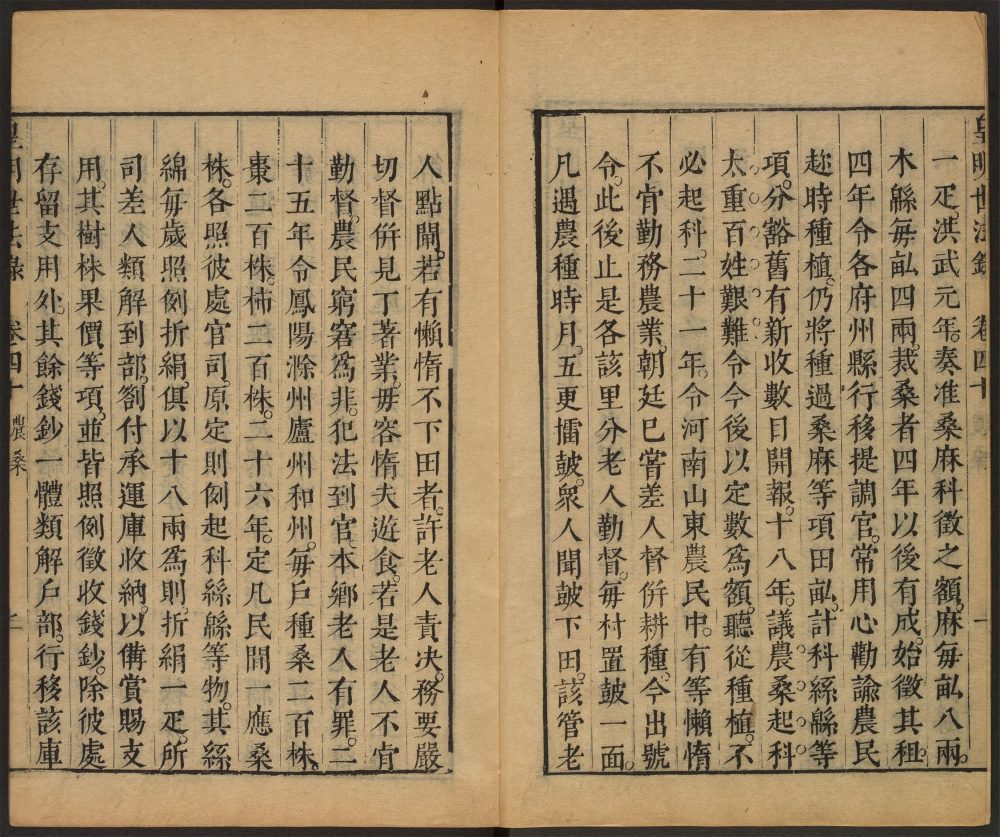 皇明世法錄 卷四十 一
一疋。洪武元年。奏准桑麻科徵之額。麻每畝八兩。
木緜每畝四兩。栽桑者四年以後有成。始徵其租。
四年令各府州縣行移提調官。常用心勸諭農民
趂時種植。仍將種過桑麻等項田畝。計科絲緜等
項。分豁舊有新收數目開報。十八年。議農桑起科
太重。百姓艱難。令今後以定數爲額。聽從種植。不
必起科。二十一年。令河南山東農民中。有等懶惰
不肯勤務農業。朝廷已嘗差人督併耕種。今出號
令。此後止是各該里分老人勤督。每村置鼓一面。
凡遇農種時月。五更擂鼓。衆人聞鼓下田。該管老
人點閘。若有懶惰不下田者。許老人責决。務要嚴
切督併見丁著業。毋容惰夫遊食。若是老人不肯
勤督。農民窮窘爲非。犯法到官。本鄉老人有罪。二
十五年令鳳陽滁州廬州和州。每戶種桑二百株。
棗二百株。柿二百株。二十六年。定凡民間一應桑
株。各照彼處官司。原定則例起科絲緜等物。其絲
綿每歲照例折絹。俱以十八兩爲則。折絹一疋。所
司差人類解到部。劄付承運庫收納。以備賞賜支
用。其樹株果價等項。並皆照例徵收錢鈔。除彼處
存留支用外。其餘錢鈔一體類解戶部。行移該庫
皇明世法錄 卷四十 農桑 二